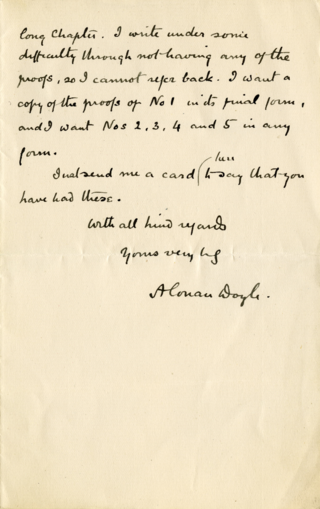 long chapter. I write under some
difficulty through not having any of the
proofs, so I cannot refer back. I want a
copy of the proofs of No 1 in its final form,
and I want Nos 2, 3, 4 and 5 in any
form.
Just send me a card (here
to say that you
have had these.
With all kind regards
Yours very
A Conan Doyle.